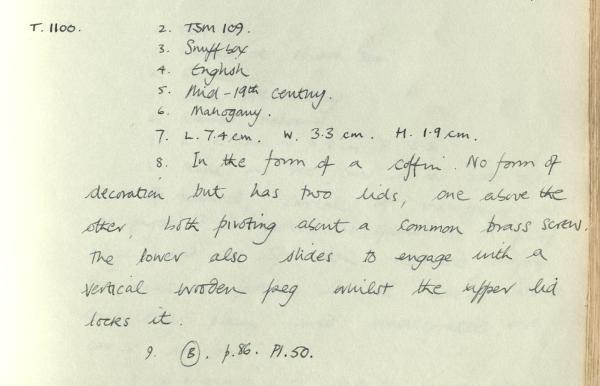 T. 1100. 2. TSM 109.
3. Snuff box
4. English
5. Mid-19th century.
6. Mahogany.
7. L. 7.4 cm. W. 3.3 cm. H. 1.9 cm.
8. In the form of a coffin. No form of
decoration but has two lids, one above the
other, both pivoting about a common brass screw.
The lower also slides to engage with a
vertical wooden peg whilst the upper lid
locks it.
9. B. p.86. Pl.50.